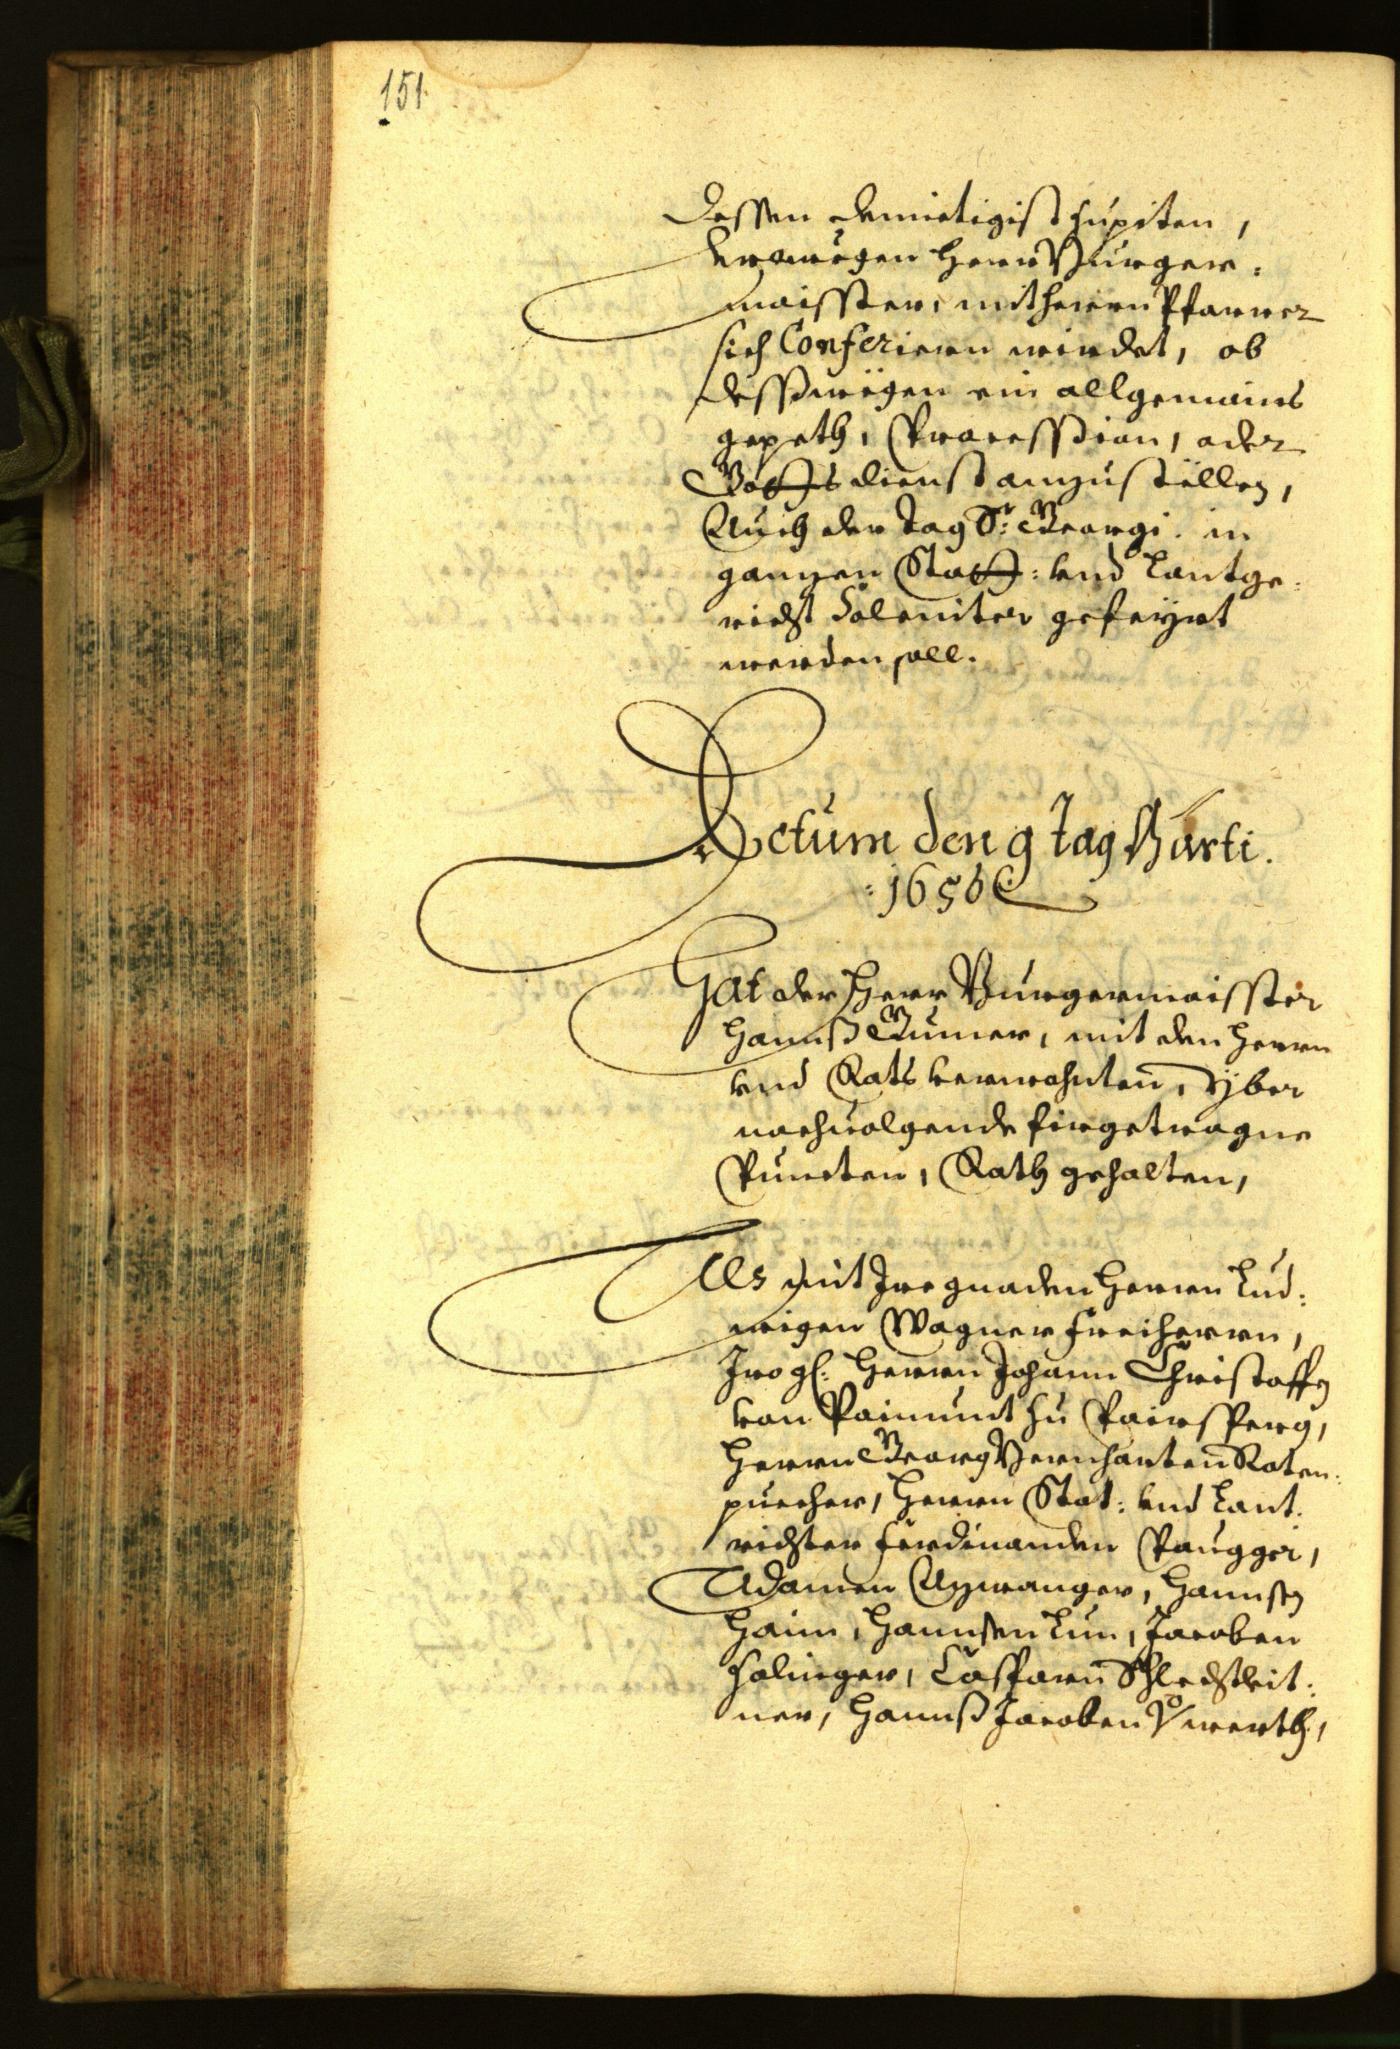 151
dessen demietigist zupiten,
derowegen Herr Burger:
maisster, mit herrn Pfarrer
sich Conferiern wirdet, ob
desswegen ein allgemaines
gepeth, Processsion, oder
Gottsdienst anzustöllen,
Auch der Tag St: Georgi. in
ganzen Statt: vnd Lantge:
richt Soleniter gefeÿrt
werden soll.
Actum den 9 Tag Marti.
:1656
Hat der Herr Burgermaisster
Hannß Gumer, mit den Herrn
vnd Rats verwohnten, ÿber
nachuolgende firgetragne
Puncten, Rath gehalten,
Als mit Ire gnaden Herrn Lud:
wigen Wagner Freiherrn,
Iro gl: Herrn Johann Christoffen
von Paimunt zu Pairsperg,
Herrn Georg Bernharten Raten:
puecher, Herrn Stat: vnd Lant:
richter Ferdinanden Paugger,
Adamen Aÿrwanger, Hannsen
Haim, Hannsen Lun, Jacoben
Holinger, Casparn Schlechtleit:
ner, Hannß Jacoben Vwerth,